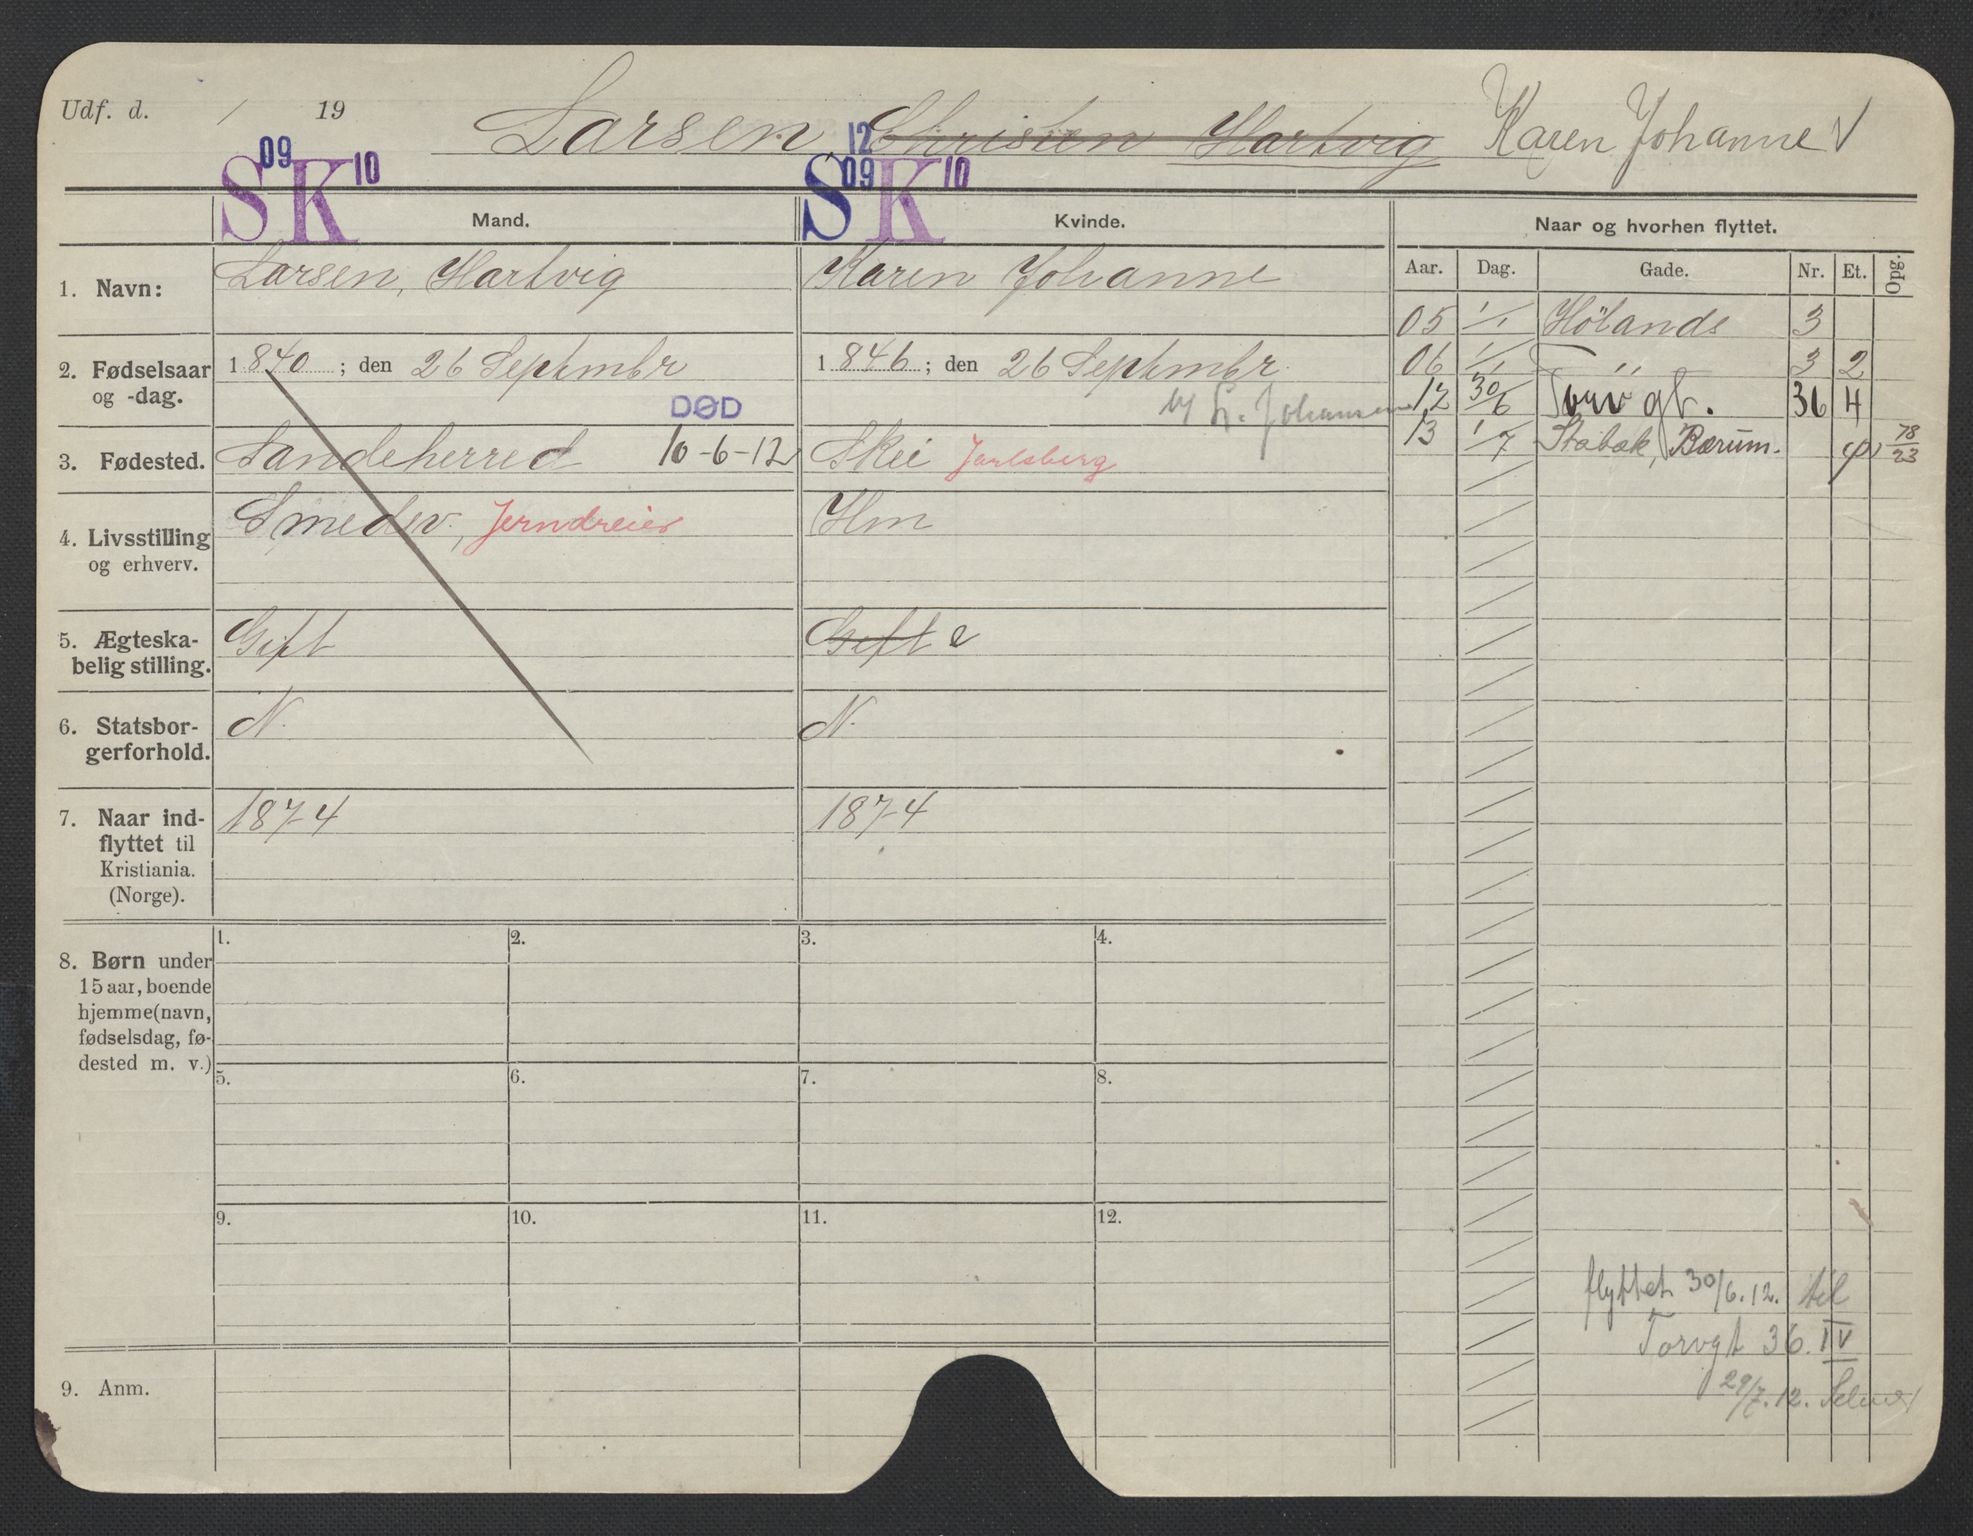 Udf. d. / 19 Larsen, Christen Hartvig Karen Johanne V
S 09 K 10
12
S 09 K 10
Mand.
Kvinde.
Naar og hvorhen flyttet.
Aar. Dag. Gade. Nr. Et. Opg.
1. Navn: Larsen, Hartvig
Karen Johanne
05 1/1 Hölands 3
2. Fødselsaar og -dag. 1840; den 26 Septmbr
DØD
1846; den 26 Septmbr.
Johansen
06 1/1 3 2
12 30/6 Torvgt. 36 4
3. Fødested. Sandeherred 10-6-12
Skei Jarlsberg
13 1/7 Stabæk, Bærum. 78/23
4. Livsstilling og erhverv. Smedsv., Jerndreier
Hm
5. Ægteska-
belig stilling. Gift
Gift e
6. Statsbor-
gerforhold. N.
N.
7. Naar ind-
flyttet til
Kristiania.
(Norge).
1874
1874
8. Børn under
15 aar, boende
hjemme (navn,
fødselsdag, fø-
dested m. v.)
1. 2. 3. 4.
5. 6. 7. 8.
9. 10. 11. 12.
flyttet 30/6.12. til
Torvgt 36. IV
29/7.12.
9. Anm.